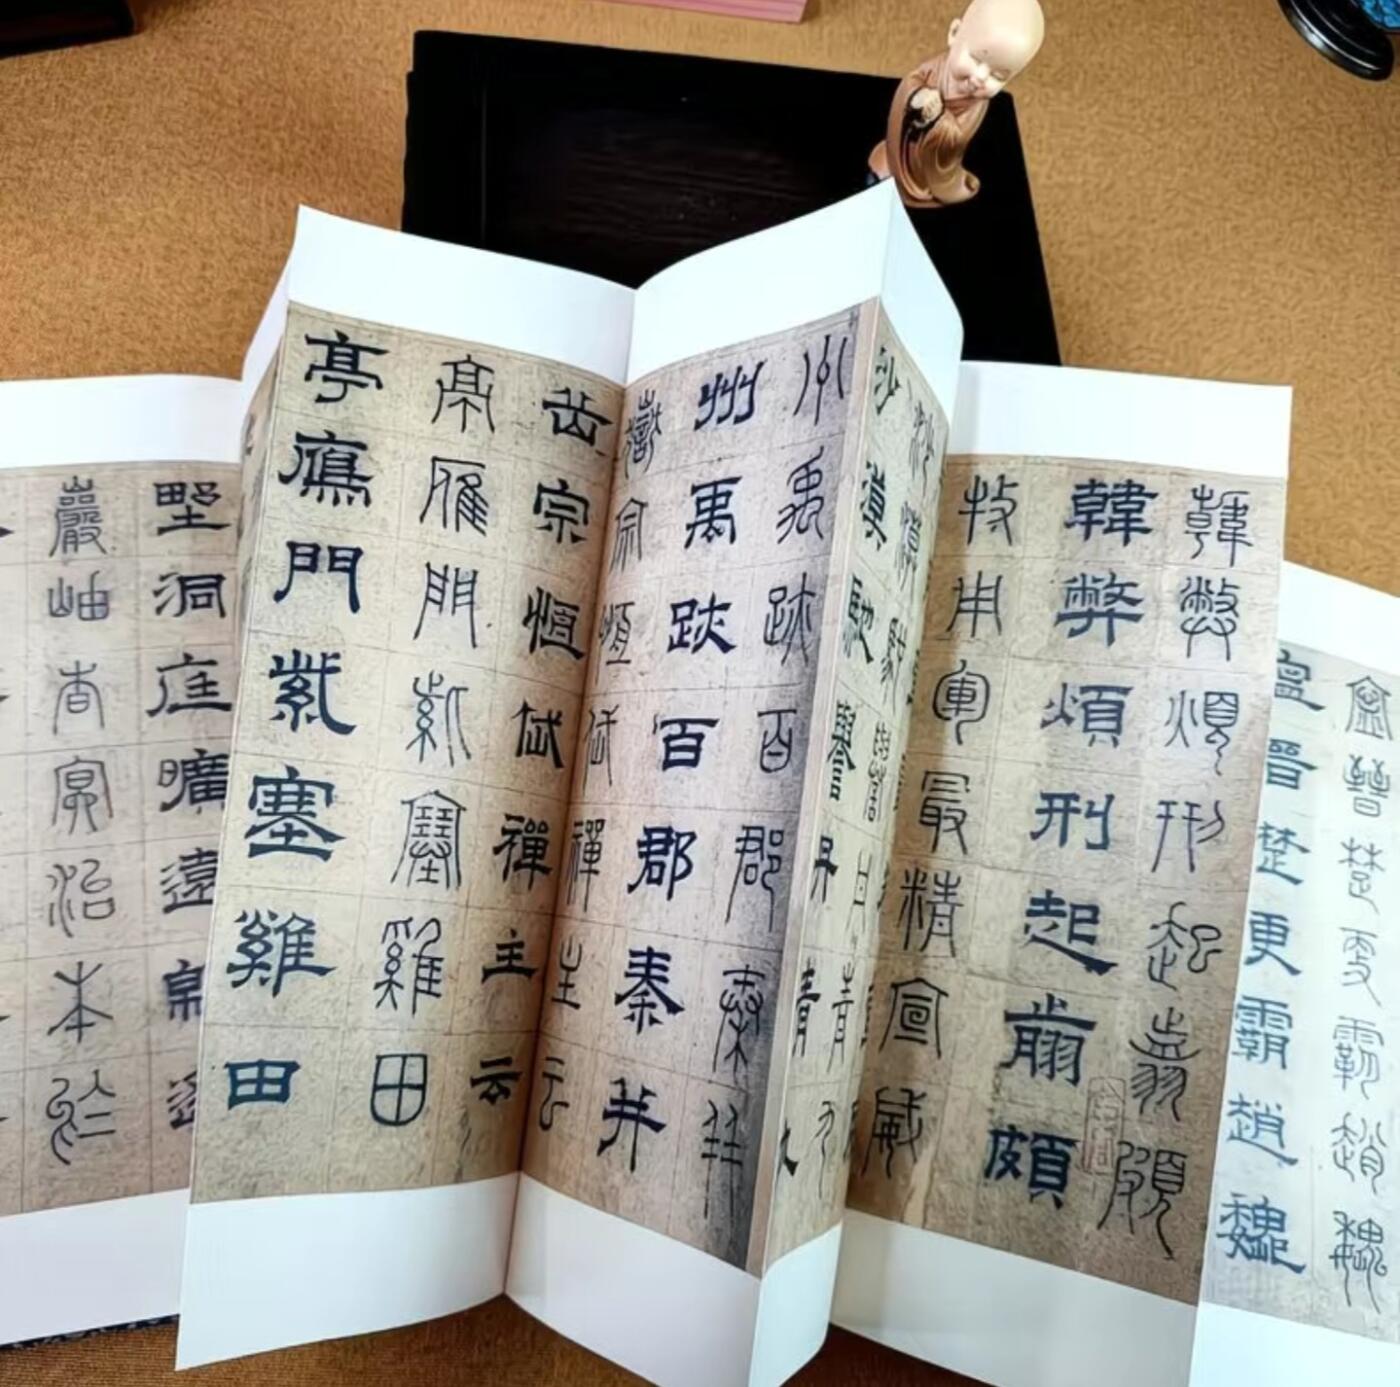 寧晉楚更霸趙魏
寧晉楚更霸趙魏
韓弊煩刑起翦頗
韓弊煩刑起翦頗
牧用軍最精宣威
沙漠馳譽丹青九
沙漠馳譽丹青九
州禹跡百郡秦并
州禹跡百郡秦并
嶽宗恆岱禪主云
岳宗恆岱禪主云
亭雁門紫塞雞田
亭鴈門紫塞雞田
野洞庭曠遠緜邈
巖岫杳冥治本於